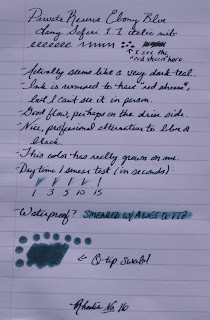 Private Reserve Ebony Blue
Lamy Safari 1.1 italic nib
eeeeeee
↑ I see the
"red sheen" here.
- Actually seems like a very dark teal.
- Ink is rumored to have "red sheen",
but I can't see it in person.
- Good flow, perhaps on the drier side.
- Nice, professional alternative to blue or
black.
- This color has really grown on me.
- Dry time / smear test (in seconds):
1 3 5 10 15
- Waterproof? SMEARED W/ A WET Q TIP
← Q-tip swab!
Rhodia No 16